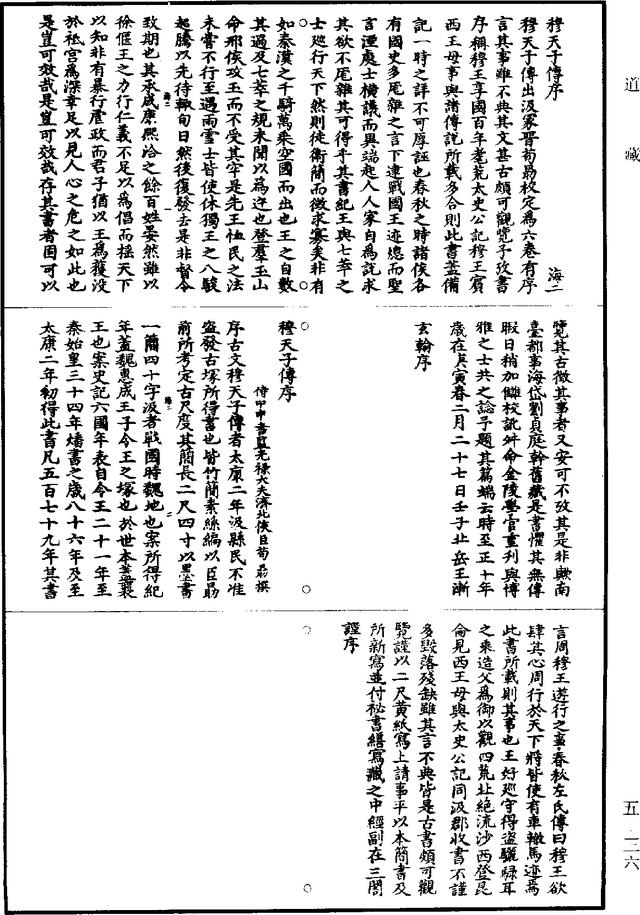 道藏
穆天子傳序 海二
穆天子傳出汲冢晉荀勗校定為六卷有序
言其事雖不典其文甚古頗可觀覽予攷書
序稱穆王享國百年耄荒太史公記穆王賓
西王母事與諸傳說所載多合則此書蓋備
記一時之詳不可厚誣也春秋之時諸侯各
有國史多厖雜之言下逮戰國王迹熄而聖
言湮處士橫議而異端起人人家自為說求
其欲不厖雜其可得乎其書紀王與七萃之
士巡行天下然則徒衛簡而徵求寡矣非有
如秦漢之千騎萬乘空國而出也王之自數
其過及七萃之規未聞以為迕也登羣玉山
命邢侯攻玉而不受其牢是先王恤民之法
未嘗不行至遇雨雪士皆使休獨王之八駿
超騰以先待輒旬日然後復發去是非督令
致期也其承成康熙洽之餘百姓晏然雖以
徐偃王之力行仁義不足以為倡而搖天下
以知非有暴行虐政而君子猶以王為獲没
於祇宮為深幸足以見人心之危之如此也
是豈可效哉是豈可效哉存其書者固可以
覽其古徵其事者又安可不攷其是非歟南
臺都事海岱劉貞庭幹舊藏是書懼其無傳
暇日稍加讎校訛舛命金陵學官重刊與博
雅之士共之諗予題其篇端云時至正十年
歲在庚寅春二月二十七日壬子北岳王漸
玄翰序
穆天子傳序
侍中中書監光祿大夫濟北侯臣荀勗撰
序古文穆天子傳者太康二年汲縣民不准
盜發古塚所得書也皆竹簡素絲編以臣勗
前所考定古尺度其簡長二尺四寸以墨書
一簡四十字汲者戰國時魏地也案所得紀
年蓋魏惠成王子令王之塚也於世本蓋襄
王也案史記六國年表自令王二十一年至
秦始皇三十四年燔書之歲八十六年及至
太康二年初得此書凡五百七十九年其書
言周穆王遊行之事春秋左氏傳曰穆王欲
肆其心周行於天下將皆使有車轍馬迹焉
此書所載則其事也王好巡守得盜驪騄耳
之乘造父為御以觀四荒北絕流沙西登昆
侖見西王母與太史公記同汲郡收書不謹
多毀落殘缺雖其言不典皆是古書頗可觀
覽謹以二尺黃紙寫上請事平以本簡書及
所新寫並付秘書繕寫藏之中經副在三閣
謹序
五·三六